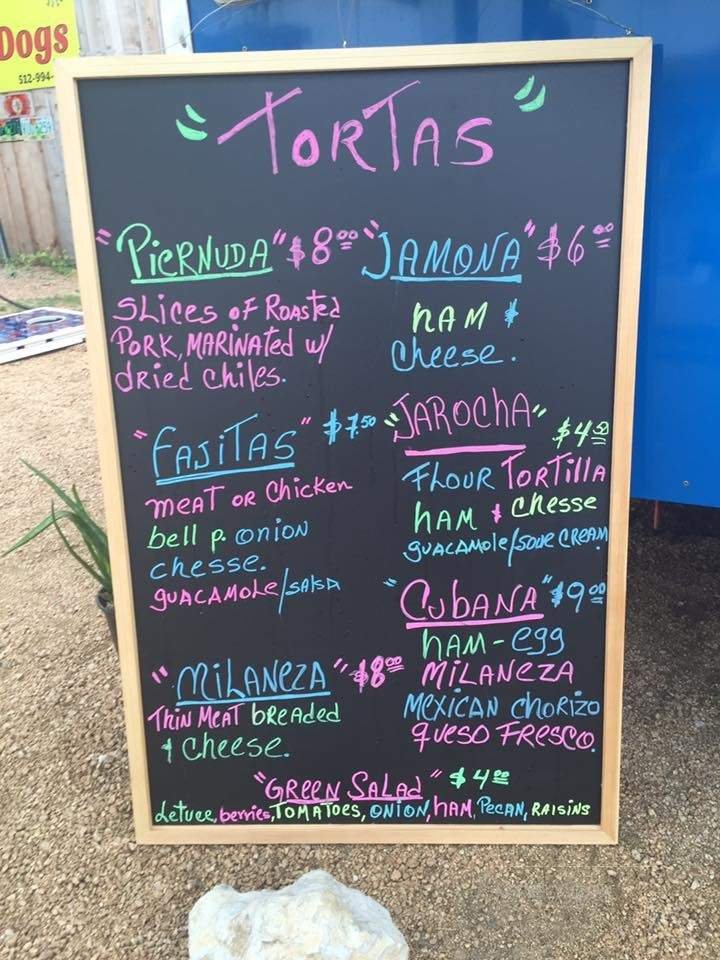 Dogs
512-994-
"TORTAS"
"PiERNUDA" $8.00
SLices oF ROASted
PORK, MARINAted w/
dRied chiles.
"JAMONA" $6.00
hAM &
Cheese.
"FAJiTAS" $7.50
meAT OR Chicken
bell p. onion
chesse.
guACAMOLe/SAlsA
"JAROChA" $4.50
FLOUR TORTillA
hAM & chesse
guACAMole/souR CREAM
"MiLANEZA" $8.00
ThiN MeAT bReaded
& Cheese.
"CubANA" $9.00
hAM-egg
MiLANEZA
MEXiCAN ChoRizo
queso FResco.
"GREEN SALAd" $4.00
Letuce, berries, TOMATOES, ONiON, hAM, PECAN, RAiSiNS